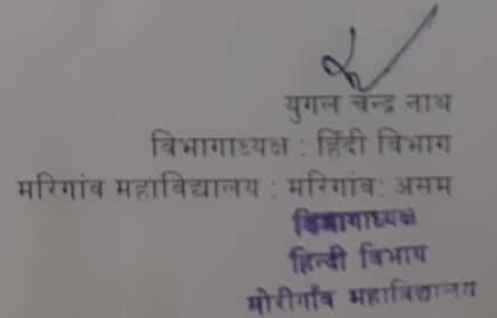 युगल चन्द्र नाथ
विभागाध्यक्ष : हिंदी विभाग
मरिगांव महाविद्यालय : मरिगांव: असम
विभागाध्यक्ष
हिन्दी विभाग
मोरीगाँव महाविद्यालय